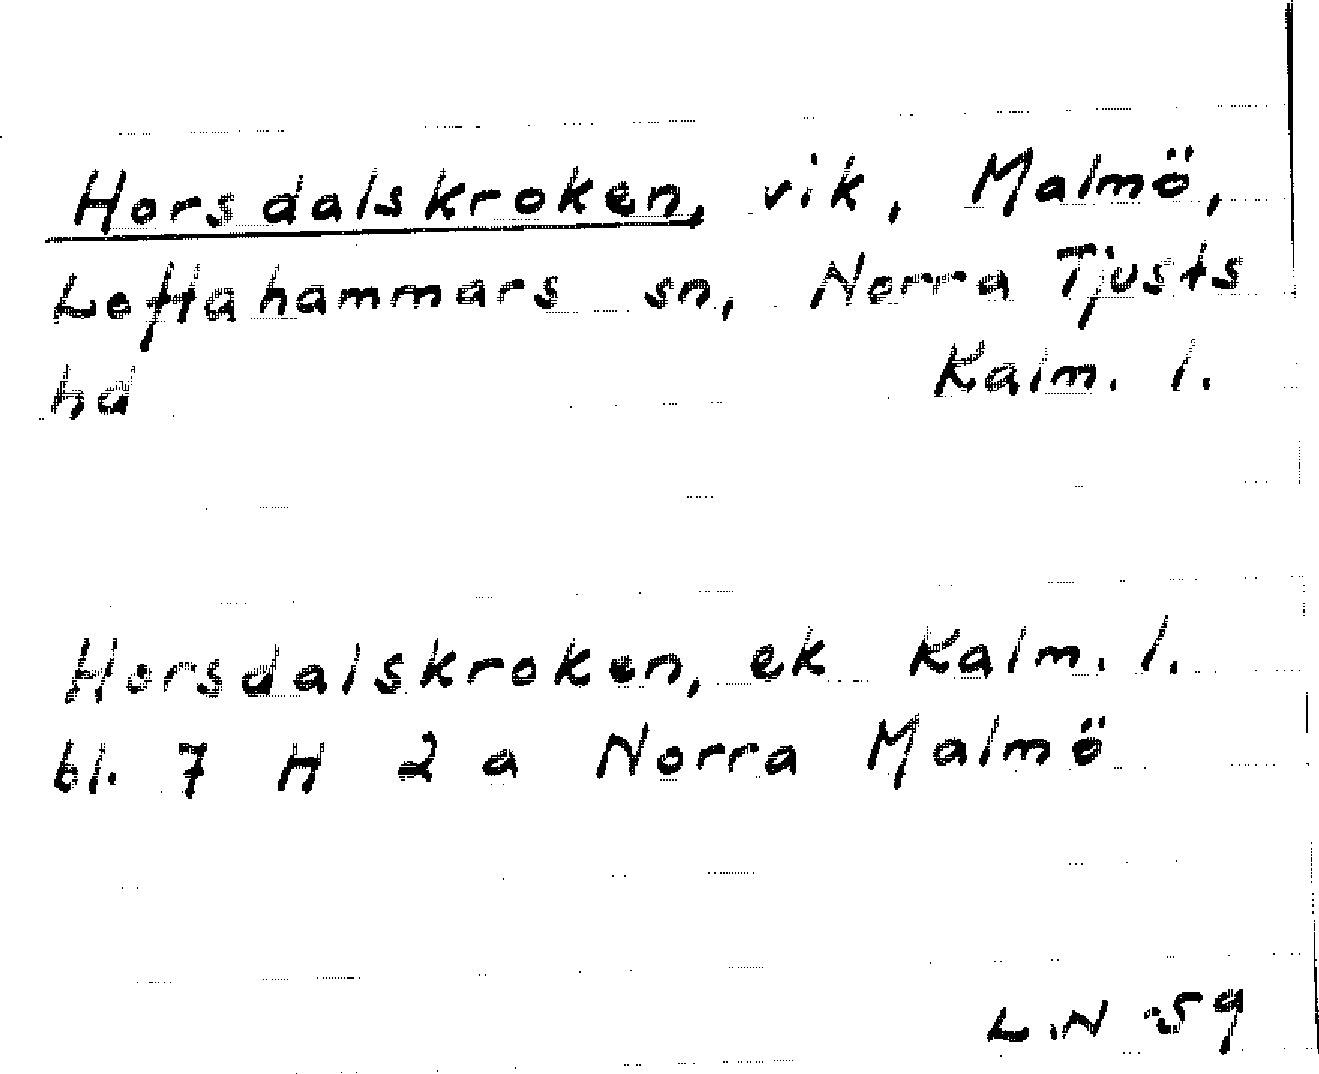 Horsdalskroken, vik, Malmö,
Loftahammars sn, Norra Tjusts
hd Kalm. l.
Horsdalskroken, ek Kalm. l.
bl. 7 H 2 a Norra Malmö
L.N 59